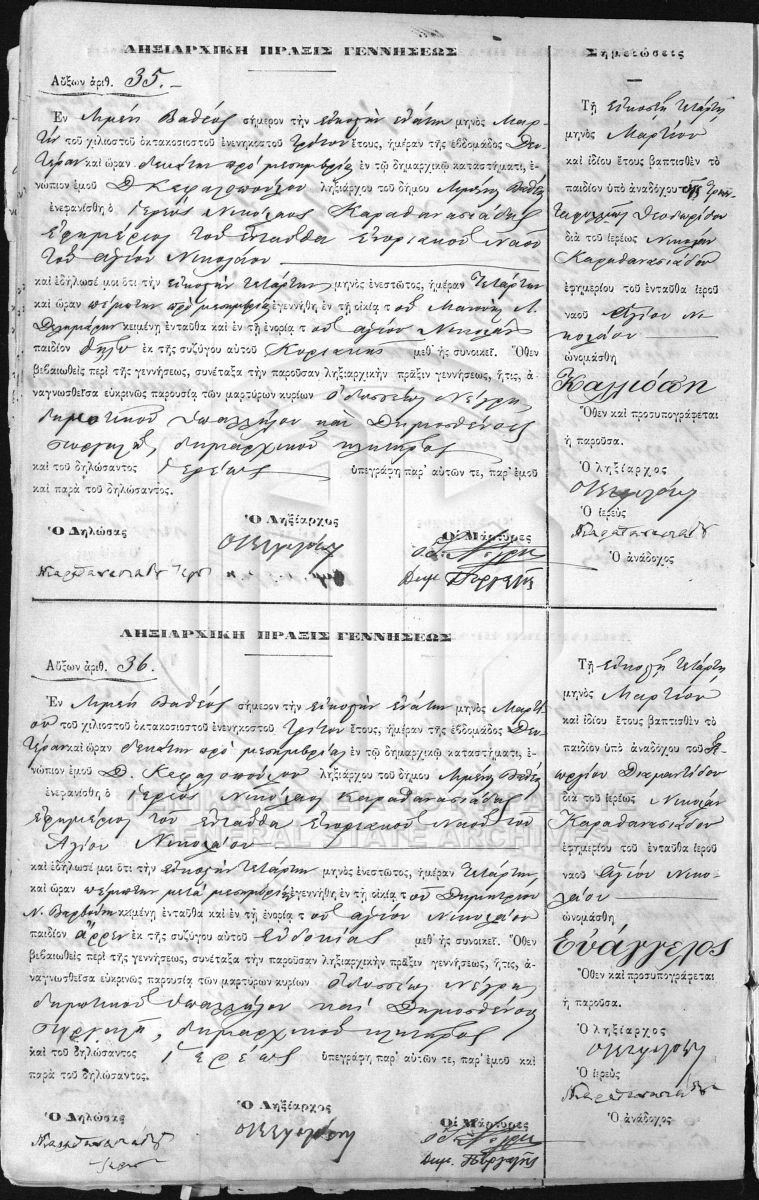 ΛΗΞΙΑΡΧΙΚΗ ΠΡΑΞΙΣ ΓΕΝΝΗΣΕΩΣ
Αὔξων ἀριθ. 35.
Ἐν Λιμένι Βαθέος σήμερον τὴν εἰκοστὴν ἐνάτην μηνὸς Μαρ-
τίου τοῦ χιλιοστοῦ ὀκτακοσιοστοῦ ἐνενηκοστοῦ τρίτου ἔτους, ἡμέραν τῆς ἑβδομάδος Δευ-
τέραν καὶ ὥραν δεκάτην πρὸ μεσημβρίας ἐν τῷ δημαρχικῷ καταστήματι, ἐ-
νώπιον ἐμοῦ Δ Κεφαλοπούλου ληξιάρχου τοῦ δήμου Λιμένος Βαθέος
ἐνεφανίσθη ὁ ἱερεὺς Νικόλαος Καραθανασιάδης
ἐφημέριος τοῦ ἐνταῦθα ἐνοριακοῦ Ναοῦ
τοῦ ἁγίου Νικολάου
καὶ ἐδήλωσέ μοι ὅτι τὴν εἰκοστὴν τετάρτην μηνὸς ἐνεστῶτος, ἡμέραν Τετάρτην
καὶ ὥραν πέμπτην πρὸ μεσημβρίας ἐγεννήθη ἐν τῇ οἰκίᾳ τοῦ
κειμένῃ ἐνταῦθα καὶ ἐν τῇ ἐνορίᾳ τοῦ ἁγίου Νικολάου
παιδίον θῆλυ ἐκ τῆς συζύγου αὐτοῦ Κυριακῆς μεθ' ἧς συνοικεῖ. Ὅθεν
βεβαιωθεὶς περὶ τῆς γεννήσεως, συνέταξα τὴν παροῦσαν ληξιαρχικὴν πρᾶξιν γεννήσεως, ἥτις, ἀ-
ναγνωσθεῖσα εὐκρινῶς παρουσίᾳ τῶν μαρτύρων κυρίων Ὀδυσσέως Νέγρη
δημοτικοῦ ὑπαλλήλου καὶ Δημοσθένους
δημαρχικοῦ κλητῆρος
καὶ τοῦ δηλώσαντος ἱερέως ὑπεγράφη παρ' αὐτῶν τε, παρ' ἐμοῦ
καὶ παρὰ τοῦ δηλώσαντος.
Ὁ Δηλώσας
Ὁ Ληξίαρχος
Οἱ Μάρτυρες
Σημειώσεις
Τῇ εἰκοστῇ τετάρτῃ
μηνὸς Μαρτίου
καὶ ἰδίου ἔτους βαπτισθὲν τὸ
παιδίον ὑπὸ ἀναδόχου τῆς Τριαν-
ταφυλλιᾶς Θεοδωρίδου
διὰ τοῦ ἱερέως Νικολάου
Καραθανασιάδου
ἐφημερίου τοῦ ἐνταῦθα ἱεροῦ
ναοῦ Ἁγίου Νι-
κολάου
ὠνομάσθη
Καλλιόπη
Ὅθεν καὶ προσυπογράφεται
ἡ παροῦσα.
Ὁ ληξίαρχος
Ὁ ἱερεὺς
Ὁ ἀνάδοχος
ΛΗΞΙΑΡΧΙΚΗ ΠΡΑΞΙΣ ΓΕΝΝΗΣΕΩΣ
Αὔξων ἀριθ. 36.
Ἐν Λιμένι Βαθέος σήμερον τὴν εἰκοστὴν ἐνάτην μηνὸς Μαρτί-
ου τοῦ χιλιοστοῦ ὀκτακοσιοστοῦ ἐνενηκοστοῦ τρίτου ἔτους, ἡμέραν τῆς ἑβδομάδος Δευ-
τέραν καὶ ὥραν δεκάτην πρὸ μεσημβρίας ἐν τῷ δημαρχικῷ καταστήματι, ἐ-
νώπιον ἐμοῦ Δ. Κεφαλοπούλου ληξιάρχου τοῦ δήμου Λιμένος Βαθέος
ἐνεφανίσθη ὁ ἱερεὺς Νικόλαος Καραθανασιάδης
ἐφημέριος τοῦ ἐνταῦθα ἐνοριακοῦ Ναοῦ τοῦ
Ἁγίου Νικολάου
καὶ ἐδήλωσέ μοι ὅτι τὴν εἰκοστὴν τετάρτην μηνὸς ἐνεστῶτος, ἡμέραν Τετάρτην
καὶ ὥραν πέμπτην μετὰ μεσημβρίαν ἐγεννήθη ἐν τῇ οἰκίᾳ τοῦ Δημητρίου
Ν. κειμένῃ ἐνταῦθα καὶ ἐν τῇ ἐνορίᾳ τοῦ ἁγίου Νικολάου
παιδίον ἄρρεν ἐκ τῆς συζύγου αὐτοῦ Εὐδοκίας μεθ' ἧς συνοικεῖ. Ὅθεν
βεβαιωθεὶς περὶ τῆς γεννήσεως, συνέταξα τὴν παροῦσαν ληξιαρχικὴν πρᾶξιν γεννήσεως, ἥτις, ἀ-
ναγνωσθεῖσα εὐκρινῶς παρουσίᾳ τῶν μαρτύρων κυρίων Ὀδυσσέως Νέγρη
δημοτικοῦ ὑπαλλήλου καὶ Δημοσθένους
δημαρχικοῦ κλητῆρος
καὶ τοῦ δηλώσαντος ἱερέως ὑπεγράφη παρ' αὐτῶν τε, παρ' ἐμοῦ καὶ
παρὰ τοῦ δηλώσαντος.
Ὁ Δηλώσας
Ὁ Ληξίαρχος
Οἱ Μάρτυρες
Τῇ εἰκοστῇ τετάρτῃ
μηνὸς Μαρτίου
καὶ ἰδίου ἔτους βαπτισθὲν τὸ
παιδίον ὑπὸ ἀναδόχου τοῦ Γε-
ωργίου Διαμαντίδου
διὰ τοῦ ἱερέως Νικολάου
Καραθανασιάδου
ἐφημερίου τοῦ ἐνταῦθα ἱεροῦ
ναοῦ Ἁγίου Νικο-
λάου
ὠνομάσθη
Εὐάγγελος
Ὅθεν καὶ προσυπογράφεται
ἡ παροῦσα.
Ὁ ληξίαρχος
Ὁ ἱερεὺς
Ὁ ἀνάδοχος
GENERAL STATE ARCHIVES